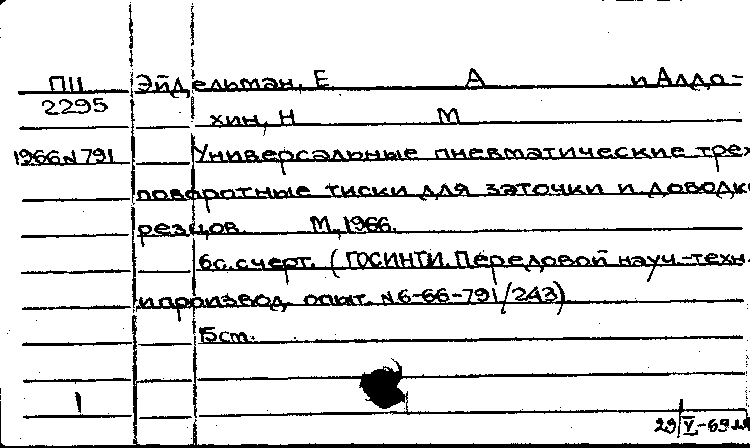 П11 Эйдельман, Е А и Алдо-
2295 хин, Н М
1966 N 791 Универсальные пневматические трех
поворотные тиски для заточки и доводк
резцов. М, 1966.
6с. с черт. (ГОСИНТИ. Передовой науч.-техн.
и производ. опыт. N 6-66-791/243)
Бст.
1
29/V-69